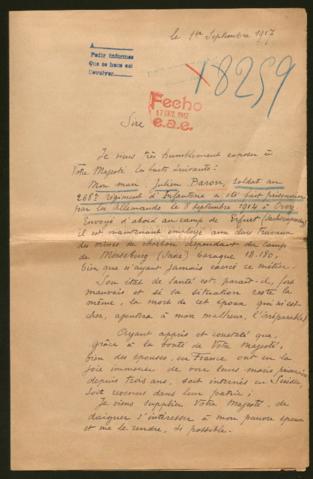 le 1er Septembre 1917
A
Pedir informes
Que se hace así
18259
Fecho
17 DIC. 1917
e.a.e.
Sire
Je viens très humblement exposer à
Votre Majesté la suivante :
Mon mari Julien Baron, soldat au
268e régiment d'Infanterie a été fait prisonnier
par les Allemands le 8 septembre 1914 à
Envoyé d'abord au camp de Erfurt
il est maintenant employé aux durs travaux
des mines de charbon dépendant du camp
de Merseburg (Saxe) baraque 18.180,
bien que n'ayant jamais exercé ce métier.
Son état de santé est, paraît-il, fort
mauvais et si sa situation reste la
même, la mort de cet époux qui m'est
cher, ajoutera à mon malheur, l'irréparable!
Ayant appris et constaté que,
grâce à la bonté de Votre Majesté,
bien des épouses, en France ont eu la
joie immense de voir leurs maris prisonniers
depuis trois ans, soit internés en Suisse,
soit revenus dans leur patrie ;
Je viens supplier Votre Majesté, de
daigner s'intéresser à mon pauvre époux
et me le rendre, si possible.